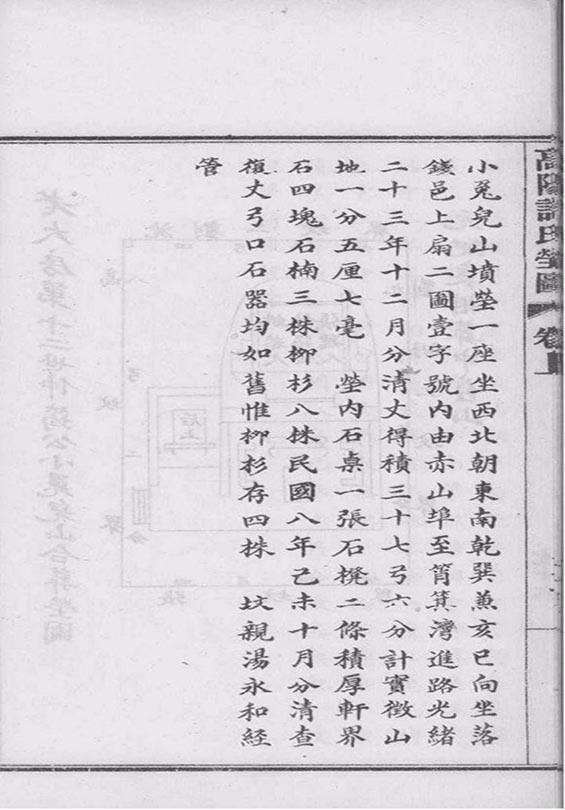 高陽許氏塋圖 卷上
小兔兒山墳塋一座坐西北朝東南乾巽兼亥巳向坐落
錢邑上扇二圖壹字號內由赤山埠至筲箕灣進路光緒
二十三年十二月分清丈得積三十七弓六分計實徵山
地一分五厘七毫 塋內石桌一張石櫈二條積厚軒界
石四塊石楠三株柳杉八株民國八年己未十月分清查
復丈弓口石器均如舊惟柳杉存四株 坟親湯永和經
管